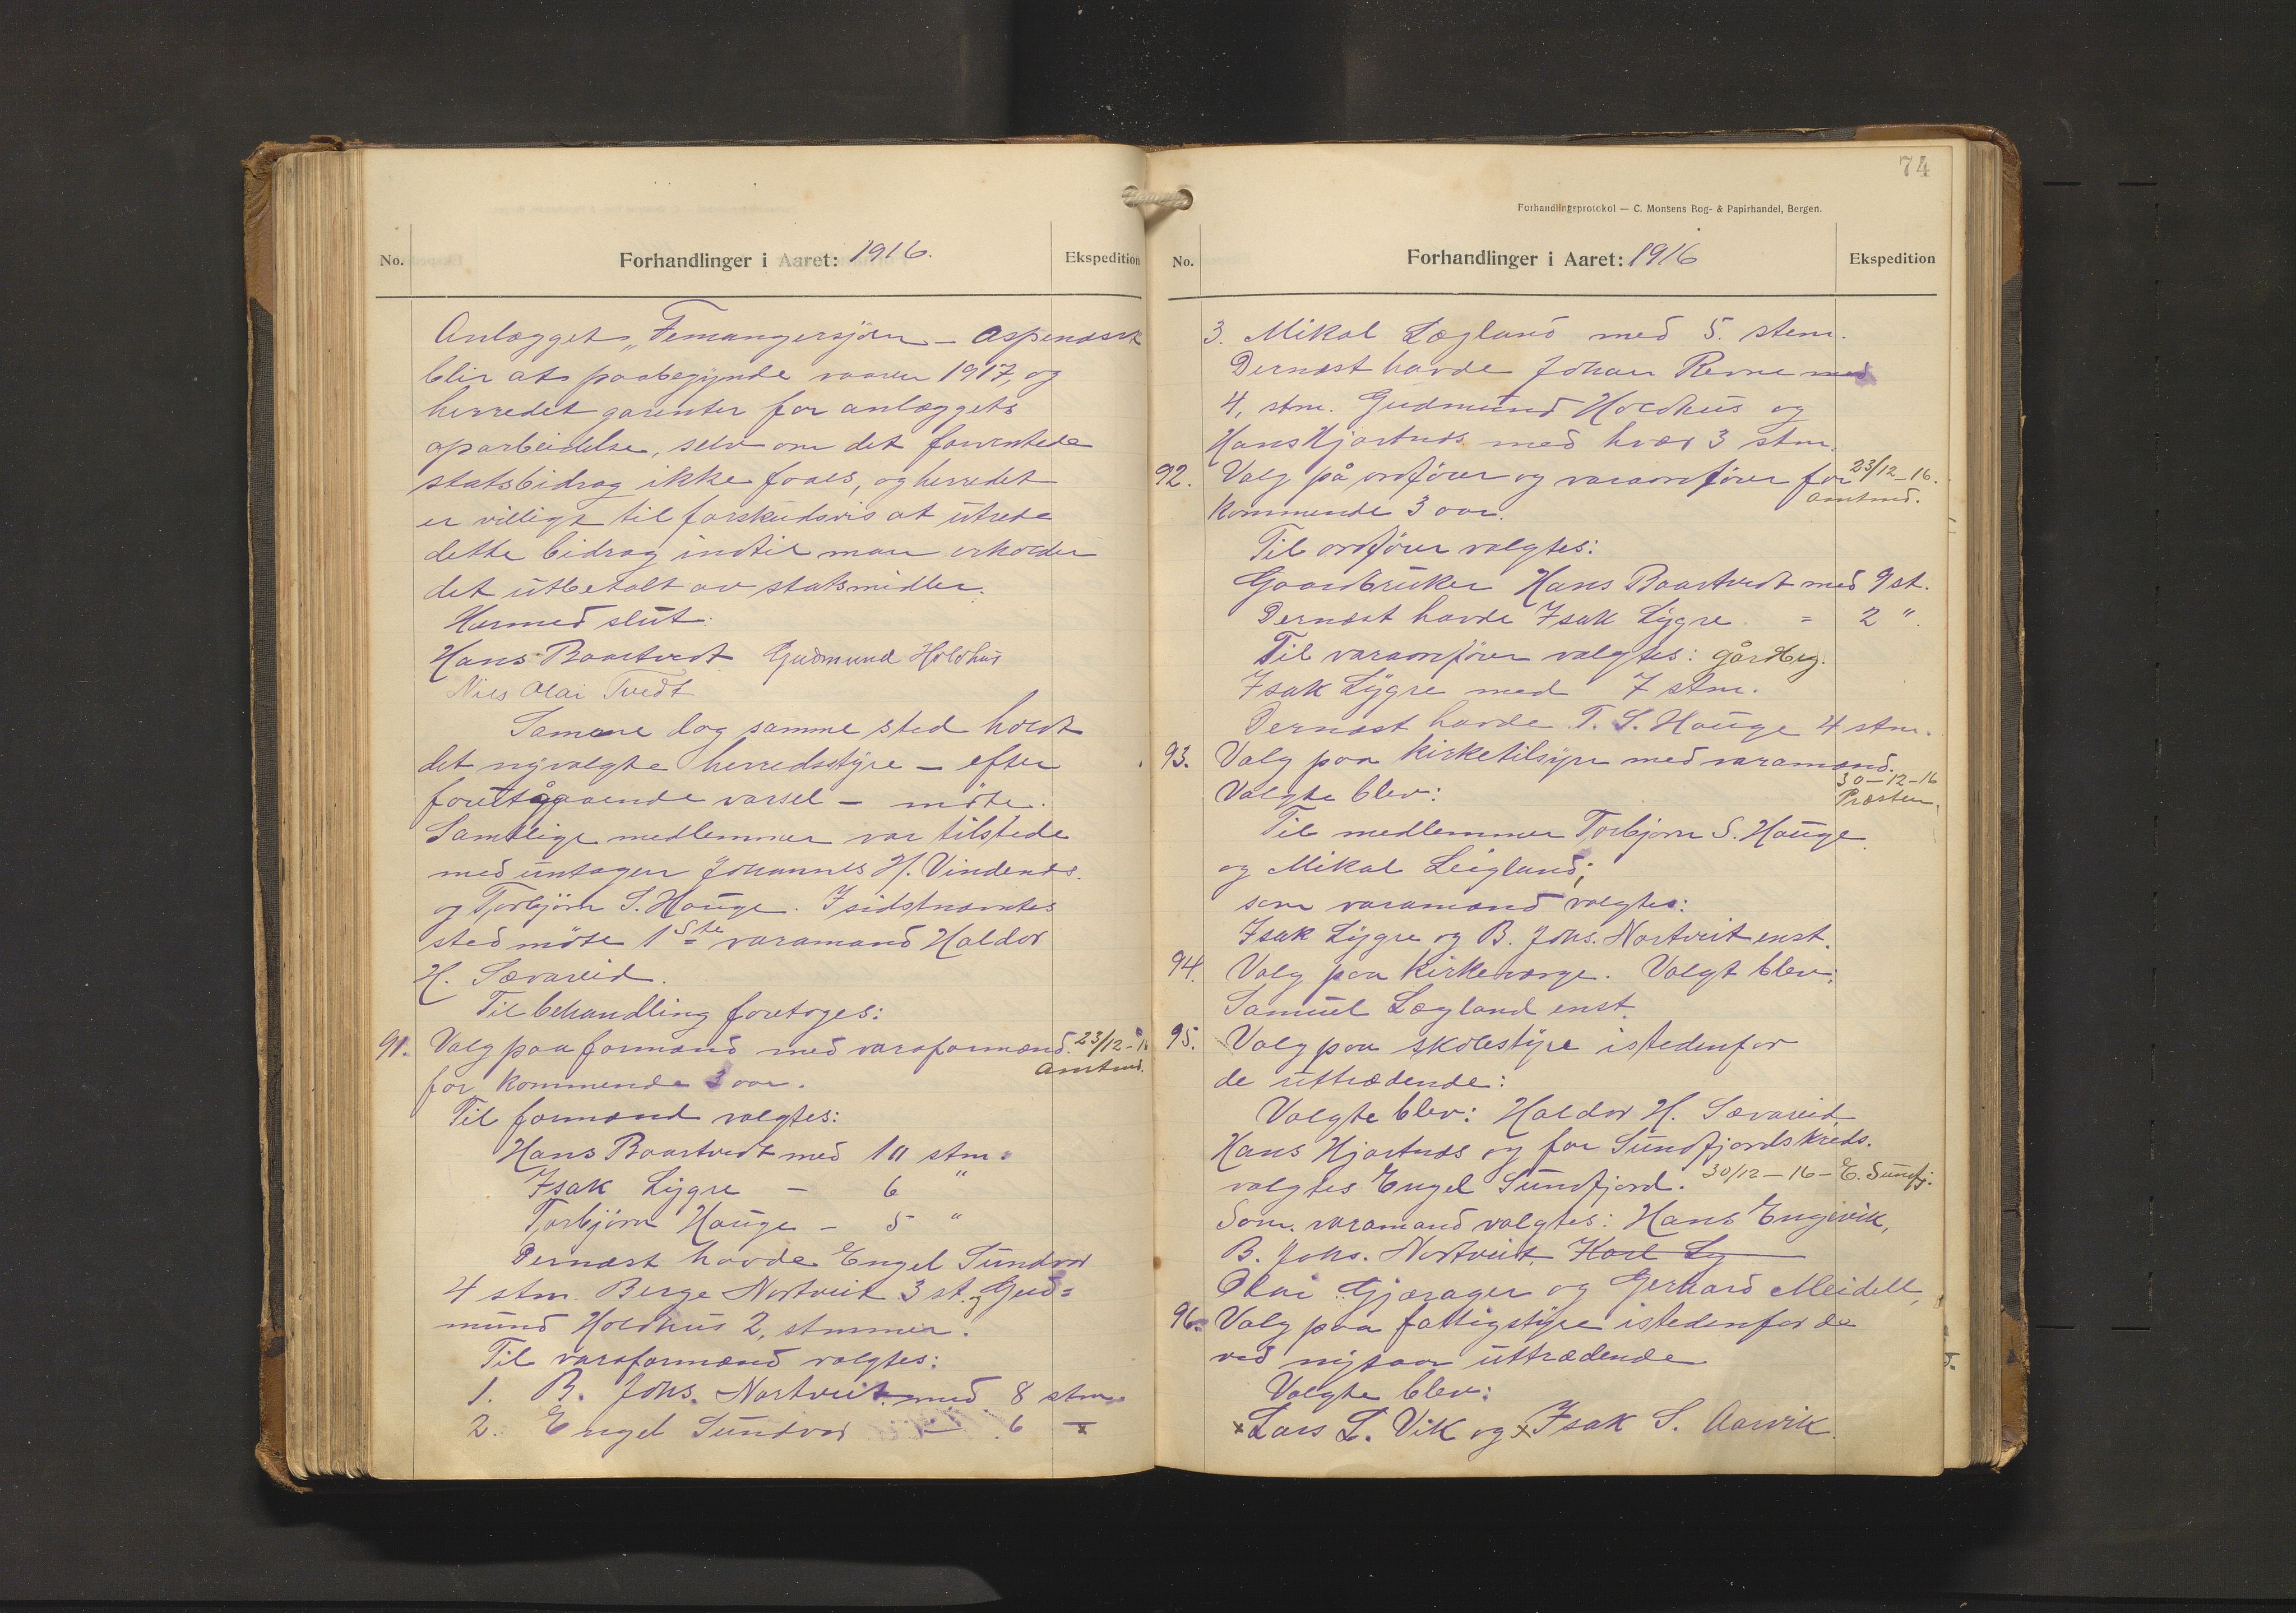 No.
Forhandlinger i Aaret: 1916.
Ekspedition
Anlægget „Femangersjøen - Aspenæsvk
blir at paabegynde vaaren 1917, og
herredet garenter for anlæggets
oparbeidelse, selv om det forventede
statsbidrag ikke faaes, og herredet
er villigt til forskudsvis at utrede
dette bidrag indtil man erholder
det utbetalt av statsmidler.
Hermed slut.
Hans Baartvedt Gudmund Holdhus
Nils Olai Tvedt
Samme dag samme sted holdt
det nyvalgte herredsstyre - efter
foretgaaende varsel - møte.
Samtlige medlemmer var tilstede
med untagen Johannes H. Vindenes.
og Torbjørn S. Hauge. I sidstnævntes
sted møte 1ste varamand Haldor
H. Sævareid.
Til behandling foretoges:
91. Valg paa formand med varaformænd. 23/12-16
for kommende 3 aar. Amtmd.
Til formænd valgtes:
Hans Baartvedt med 10 stm.
Isak Lygre - 6 "
Torbjørn Hauge - 5 "
Dernæst havde Engel Sundvor
4 stm. Berge Nortveit 3 st. og Gud=
mund Holdhus 2, stmmer.
Til varaformænd valgtes:
1. B. Johs. Nortveit med 8 stm.
2. Engel Sundvor - 6 -
74
Forhandlingsprotokol — C. Monsens Bog- & Papirhandel, Bergen.
No.
Forhandlinger i Aaret: 1916
Ekspedition
3. Mikal Lægland med 5. stem.
Dernæst havde Johan Revne med
4, stm. Gudmund Holdhus og
Hans Hjartnæs med hver 3 stm.
92. Valg på ordfører og varaordfører for 23/12-16.
kommende 3 aar. Amtmd.
Til ordfører valgtes:
Gaardbruker Hans Baartvedt med 9 st.
Dernæst havde Isak Lygre = 2 "
Til varaordfører valgtes: gårdbrg.
Isak Lygre med 7 stm.
Dernæst havde T. S. Hauge 4 stm.
93. Valg paa kirketilsyn med varamænd.
30-12-16
Valgte blev: Præsten.
Til medlemmer Torbjørn S. Hauge
og Mikal Leigland;
som varamænd valgtes:
Isak Lygre og B. Johs. Nortveit enst.
94. Valg paa kirkeværge. Valgt blev:
Samuel Lægland enst.
95. Valg paa skolestyre istedenfor
de uttrædende:
Valgte blev: Haldor H. Sævareid,
Hans Hjartnæs og for Sundfjords kreds.
valgtes Engel Sundfjord. 30/12-16-E. Sundfj.
Som varamænd valgtes: Hans Engevik,
B. Johs. Nortveit, Karl Ly
Olai Gjærager og Gerhard Meidell,
96. Valg paa fattigstyre istedenfor de
ved nytaar uttrædende
Valgte blev:
x Lars L. Vik og x Isak S. Aarvik.